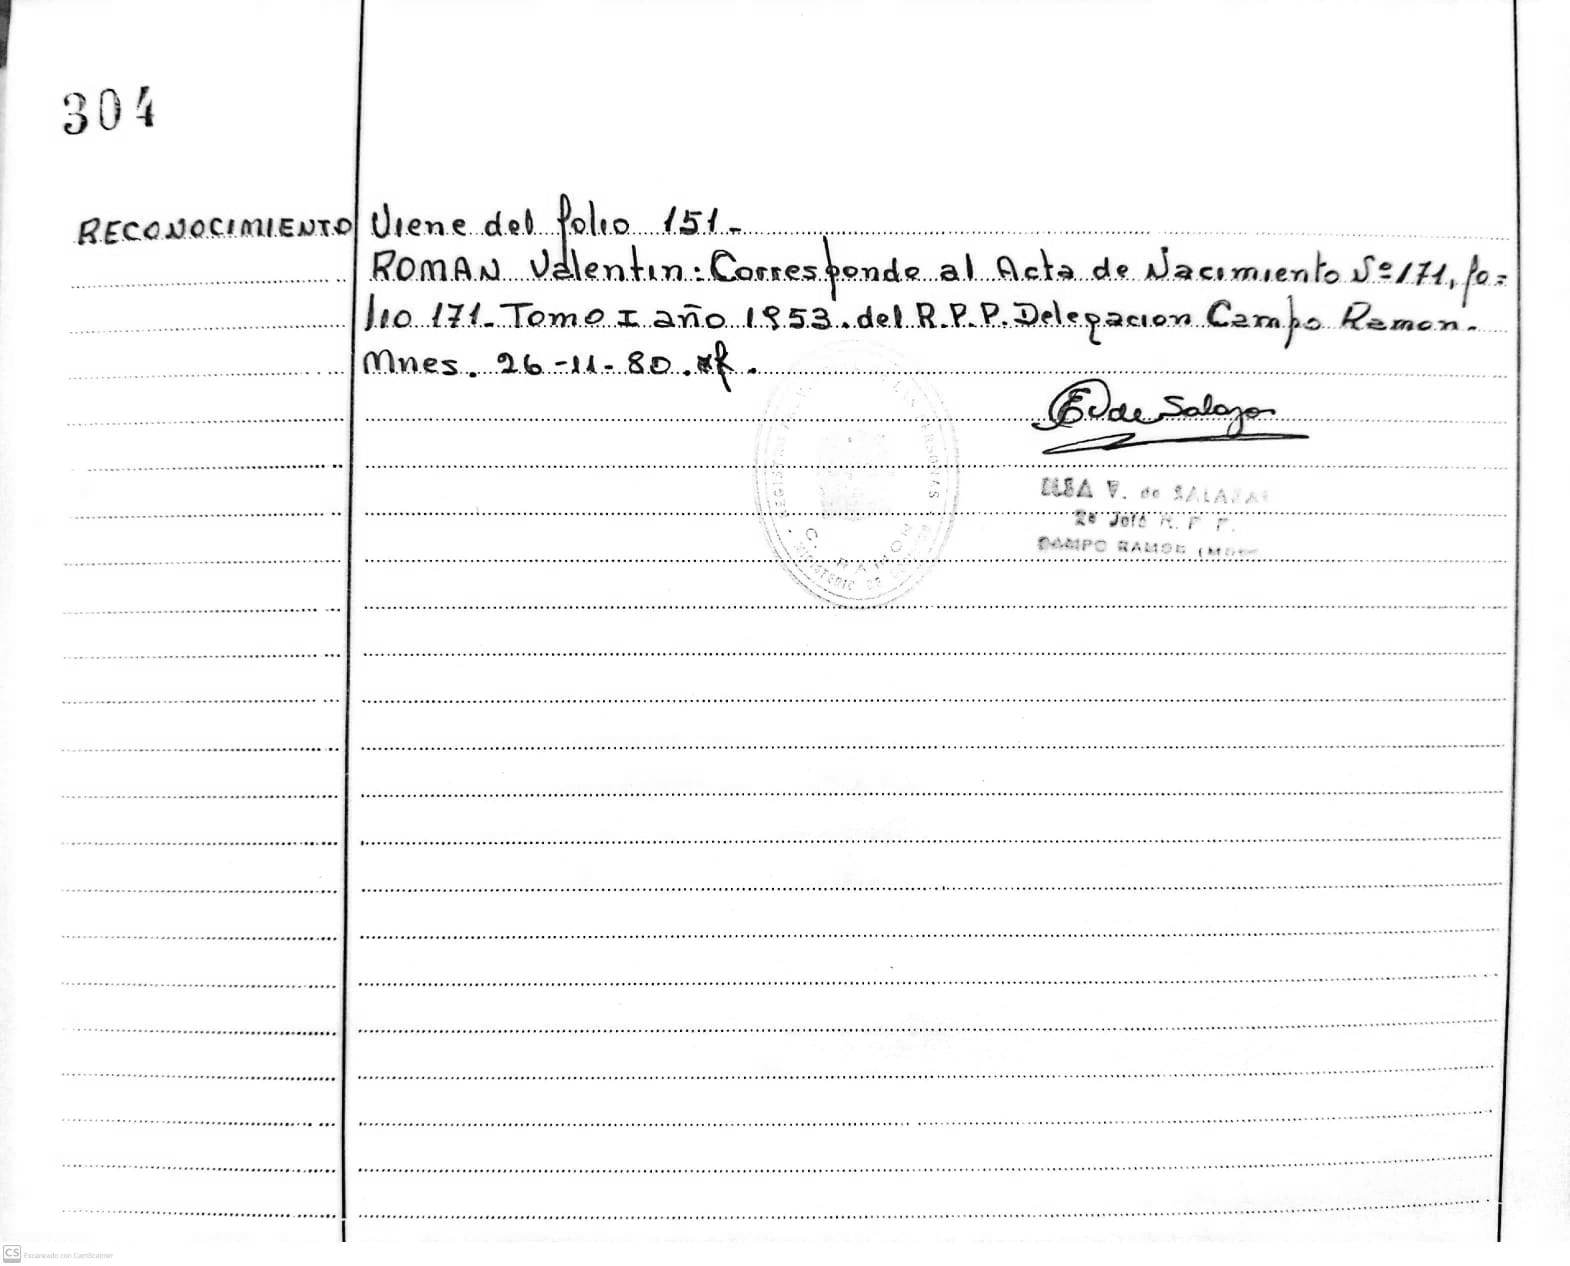 304
RECONOCIMIENTO Viene del folio 151.-
ROMAN Valentin: Corresponde al Acta de Nacimiento Nº 171, fo=
lio 171.- Tomo I año 1953. del R.P.P. Delegacion Campo Ramon.-
Mnes. 26-11-80.
E V de Salazar
ELSA V. de SALAZAR
2º Jefe R. P. P.
CAMPO RAMON (Mnes
C. RAMON
CS Escaneado con CamScanner